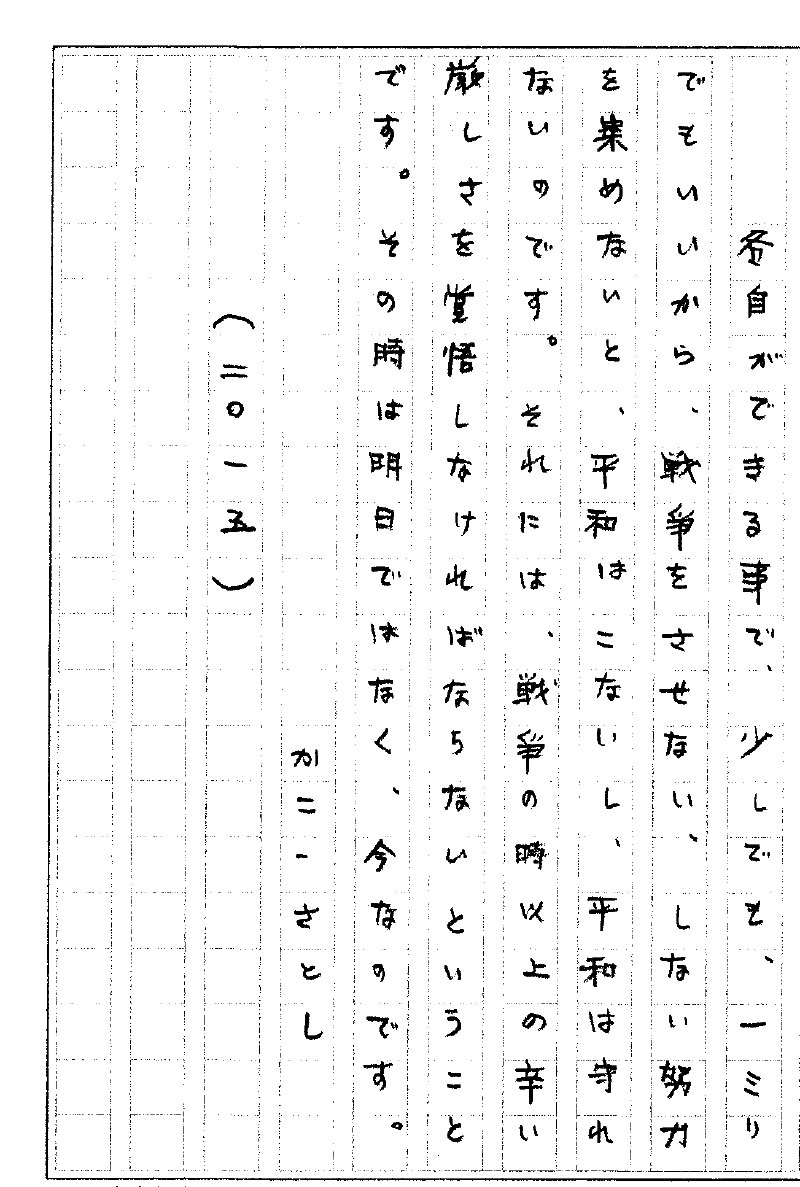 各自ができる事で、少しでも、一ミリ
でもいいから、戦争をさせない、しない努力
を集めないと、平和はこないし、平和は守れ
ないのです。それには、戦争の時以上の辛い
厳しさを覚悟しなければならないということ
です。その時は明日ではなく、今なのです。
かこ・さとし
（二〇一五）